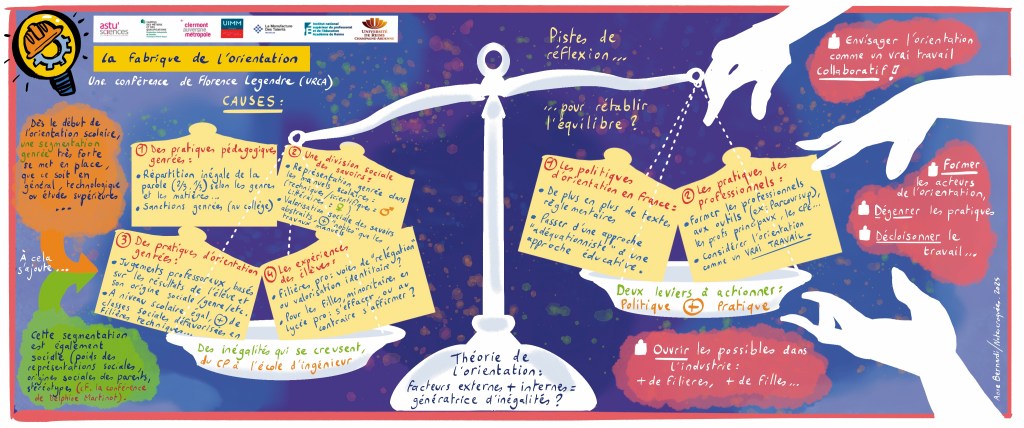 astu'
sciences
clermont
auvergne
métropole
UIMM
La Manufacture
Des Talents
Institut national
supérieur du professorat
et de l'éducation
UNIVERSITÉ
DE REIMS
CHAMPAGNE-ARDENNE
La fabrique de l'orientation
Une conférence de Florence Legendre (URCA)
CAUSES :
Dès le début de
l'orientation scolaire,
une segmentation
genrée très forte
se met en place,
que ce soit en
général, technologique
ou études supérieures
...
À cela
s'ajoute...
Cette segmentation
est également
sociale (poids des
représentations sociales,
origines sociales des parents,
stéréotypes (cf. la conférence
de Delphine Martinot).
1 Des pratiques pédagogiques
genrées :
• Répartition inégale de la
parole (2/3, 1/3) selon les genres
et les matières...
• Sanctions genrées (au collège)
2 Une division sociale
des savoirs :
• Représentation genrée dans
les manuels scolaires :
(technique/scientifique : ♂
littéraire : ♀)
• Valorisation sociale des savoirs
abstraits, + nobles que les
travaux manuels
3 Des pratiques d'orientation
genrées :
• Jugements professoraux, basés
sur les résultats de l'élève et
son origine sociale/genre/etc.
• À niveau scolaire égal, + de
classes sociales défavorisées en
filières techniques...
4 Les expériences
des élèves :
• Filière pro : voie de "relégation"
ou valorisation identitaire ?
• Pour les filles, minoritaires en
lycée pro : s'effacer ou au
contraire s'affirmer ?
Des inégalités qui se creusent,
du CP à l'école d'ingénieur
Théorie de
l'orientation :
facteurs externes + internes =
génératrice d'inégalités ?
Pistes de
réflexion...
...pour rétablir
l'équilibre ?
1 Les politiques
d'orientation en France :
• De plus en plus de textes
règlementaires
• Passer d'une approche
"adéquationniste" à une
approche éducative.
2 Les pratiques des
professionnels :
• Former les professionnels
aux outils (ex : Parcoursup),
les profs principaux, les CPE...
• Considérer l'orientation
comme un VRAI TRAVAIL
Deux leviers à actionner :
Politique + Pratique
Envisager l'orientation
comme un vrai travail
collaboratif !
Former
les acteurs
de l'orientation,
Dégenrer les pratiques
Décloisonner le
travail...
Ouvrir les possibles dans
l'industrie :
+ de filières, + de filles...